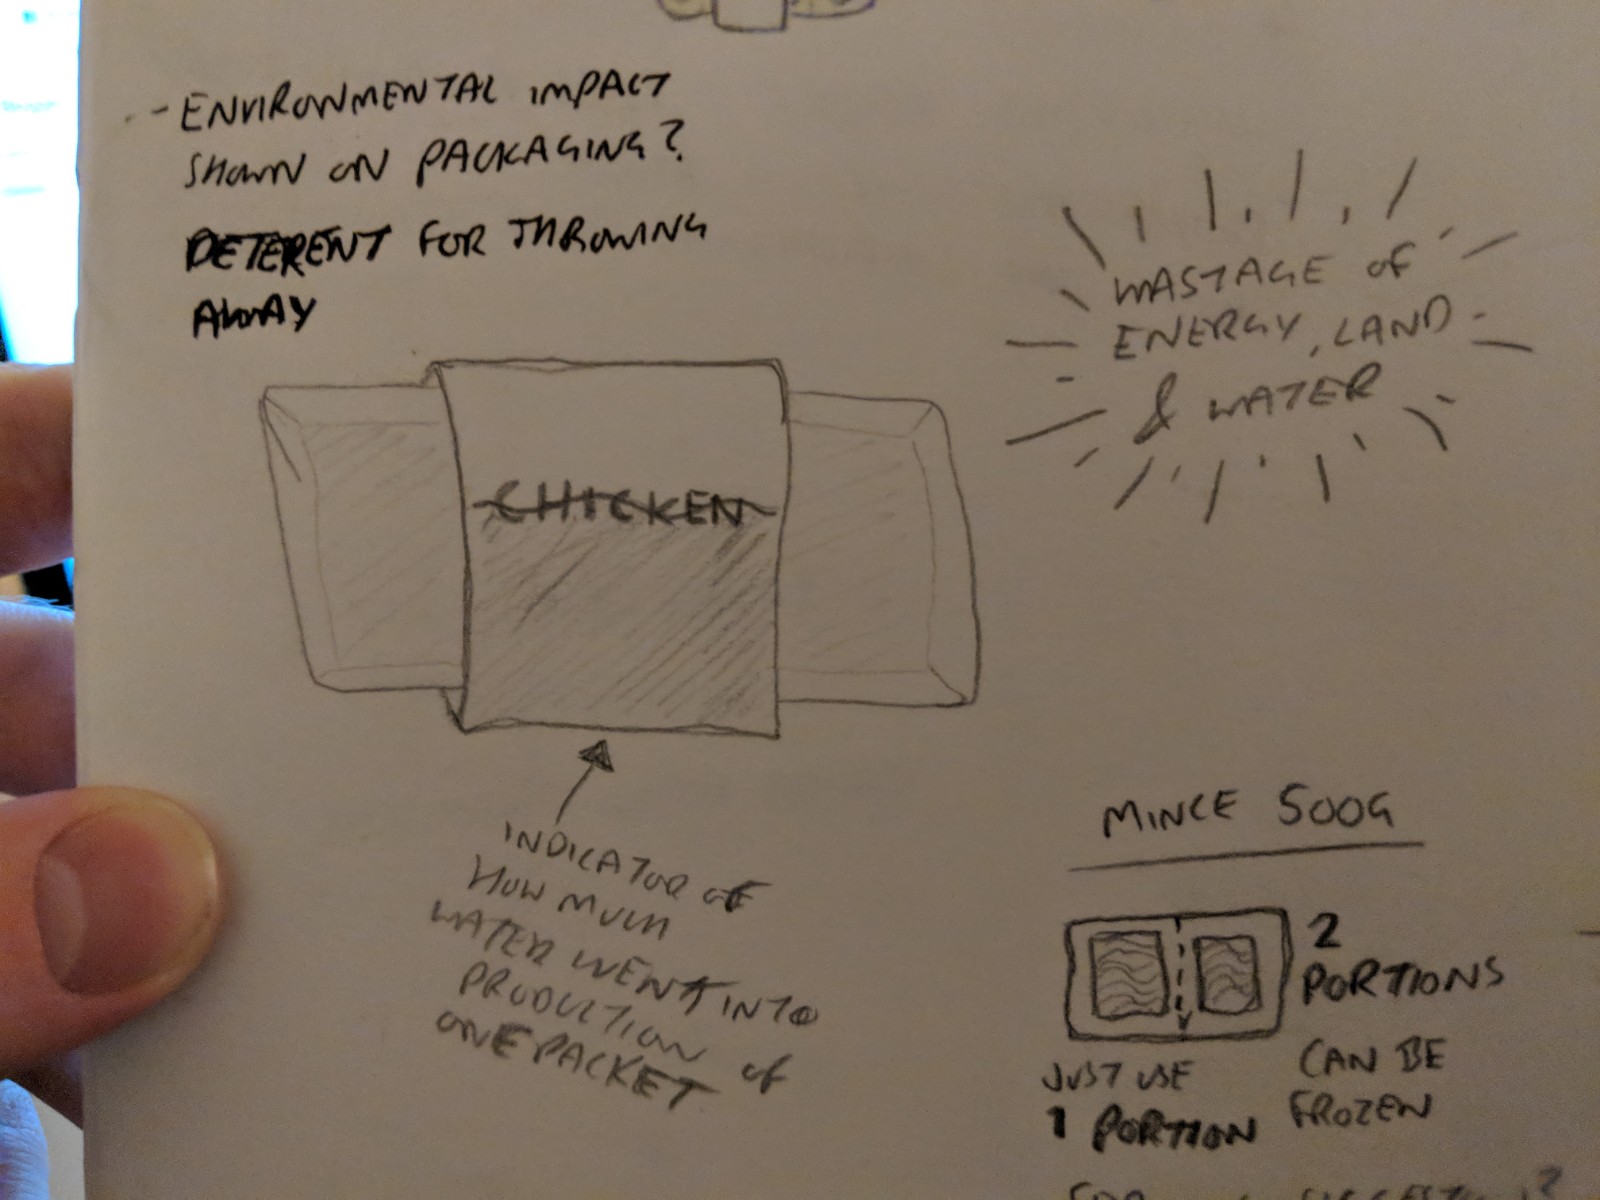 - ENVIRONMENTAL IMPACT
SHOWN ON PACKAGING?
DETERENT FOR THROWING
AWAY
WASTAGE OF
ENERGY, LAND
& WATER
CHICKEN
INDICATOR OF
HOW MUCH
WATER WENT INTO
PRODUCTION OF
ONE PACKET
MINCE 500G
2
PORTIONS
CAN BE
FROZEN
JUST USE
1 PORTION